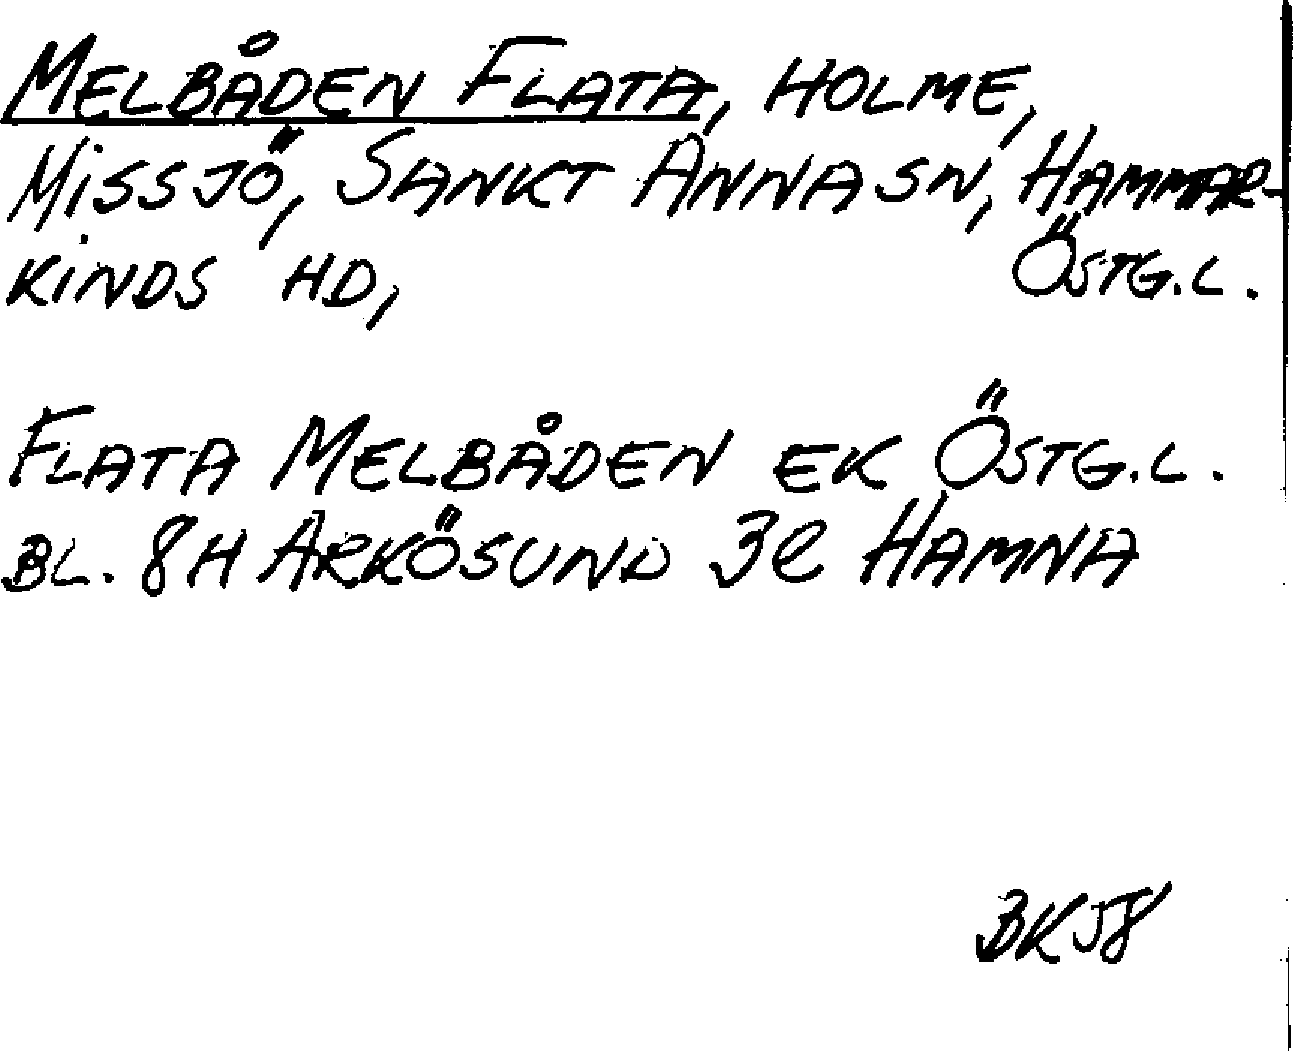 MELBÅDEN FLATA, HOLME,
MISSJÖ, SANKT ANNA SN, HAMMAR-
KINDS HD, ÖSTG.L.
FLATA MELBÅDEN EK ÖSTG.L.
BL. 8H ARKÖSUND 3e HAMNA